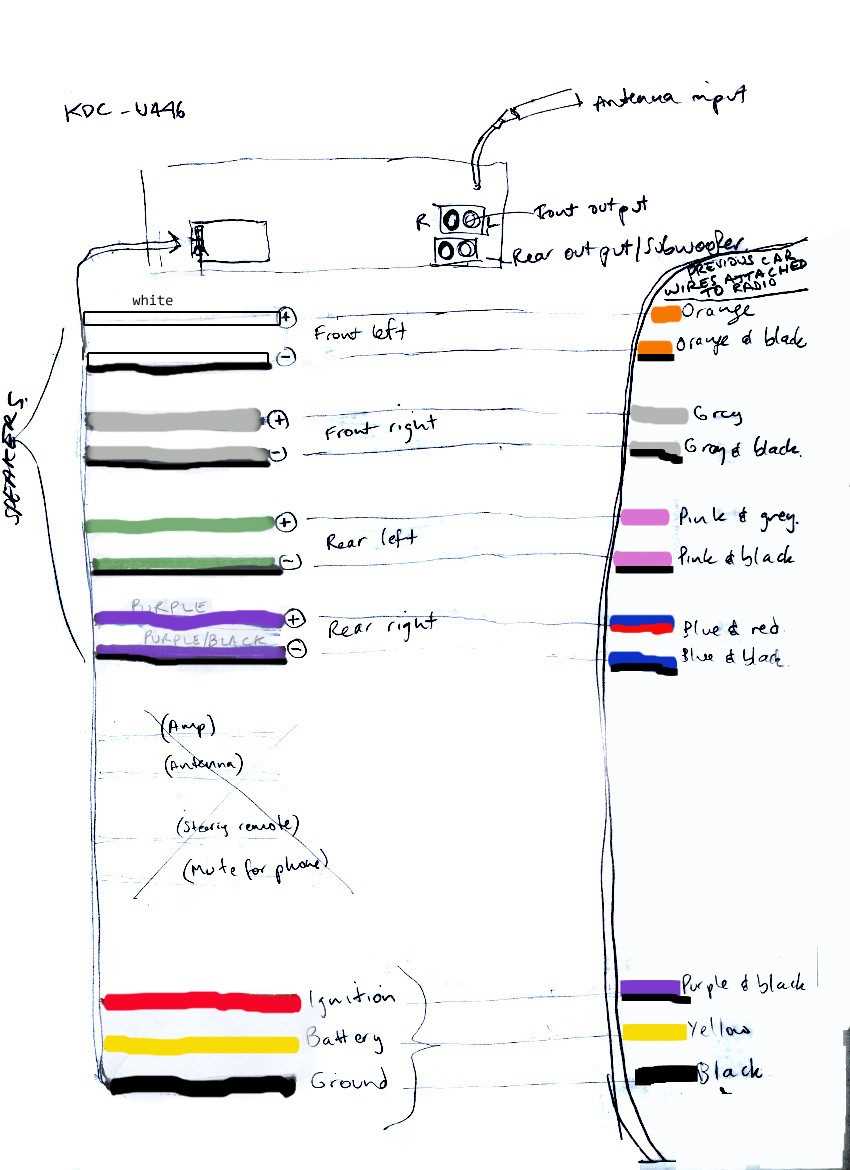 KDC-U446
Antenna input
R L Front output
Rear output/Subwoofer
PREVIOUS CAR
WIRES ATTACHED
TO RADIO
SPEAKERS
white
+
Front left
Orange
-
Orange & black
+
Front right
Grey
-
Grey & black.
+
Rear left
Pink & grey.
-
Pink & black
PURPLE
+
Rear right
Blue & red
PURPLE/BLACK
-
Blue & black
(Amp)
(Antenna)
(Steerig remote)
(Mute for phone)
Ignition
Purple & black
Battery
Yellow
Ground
Black